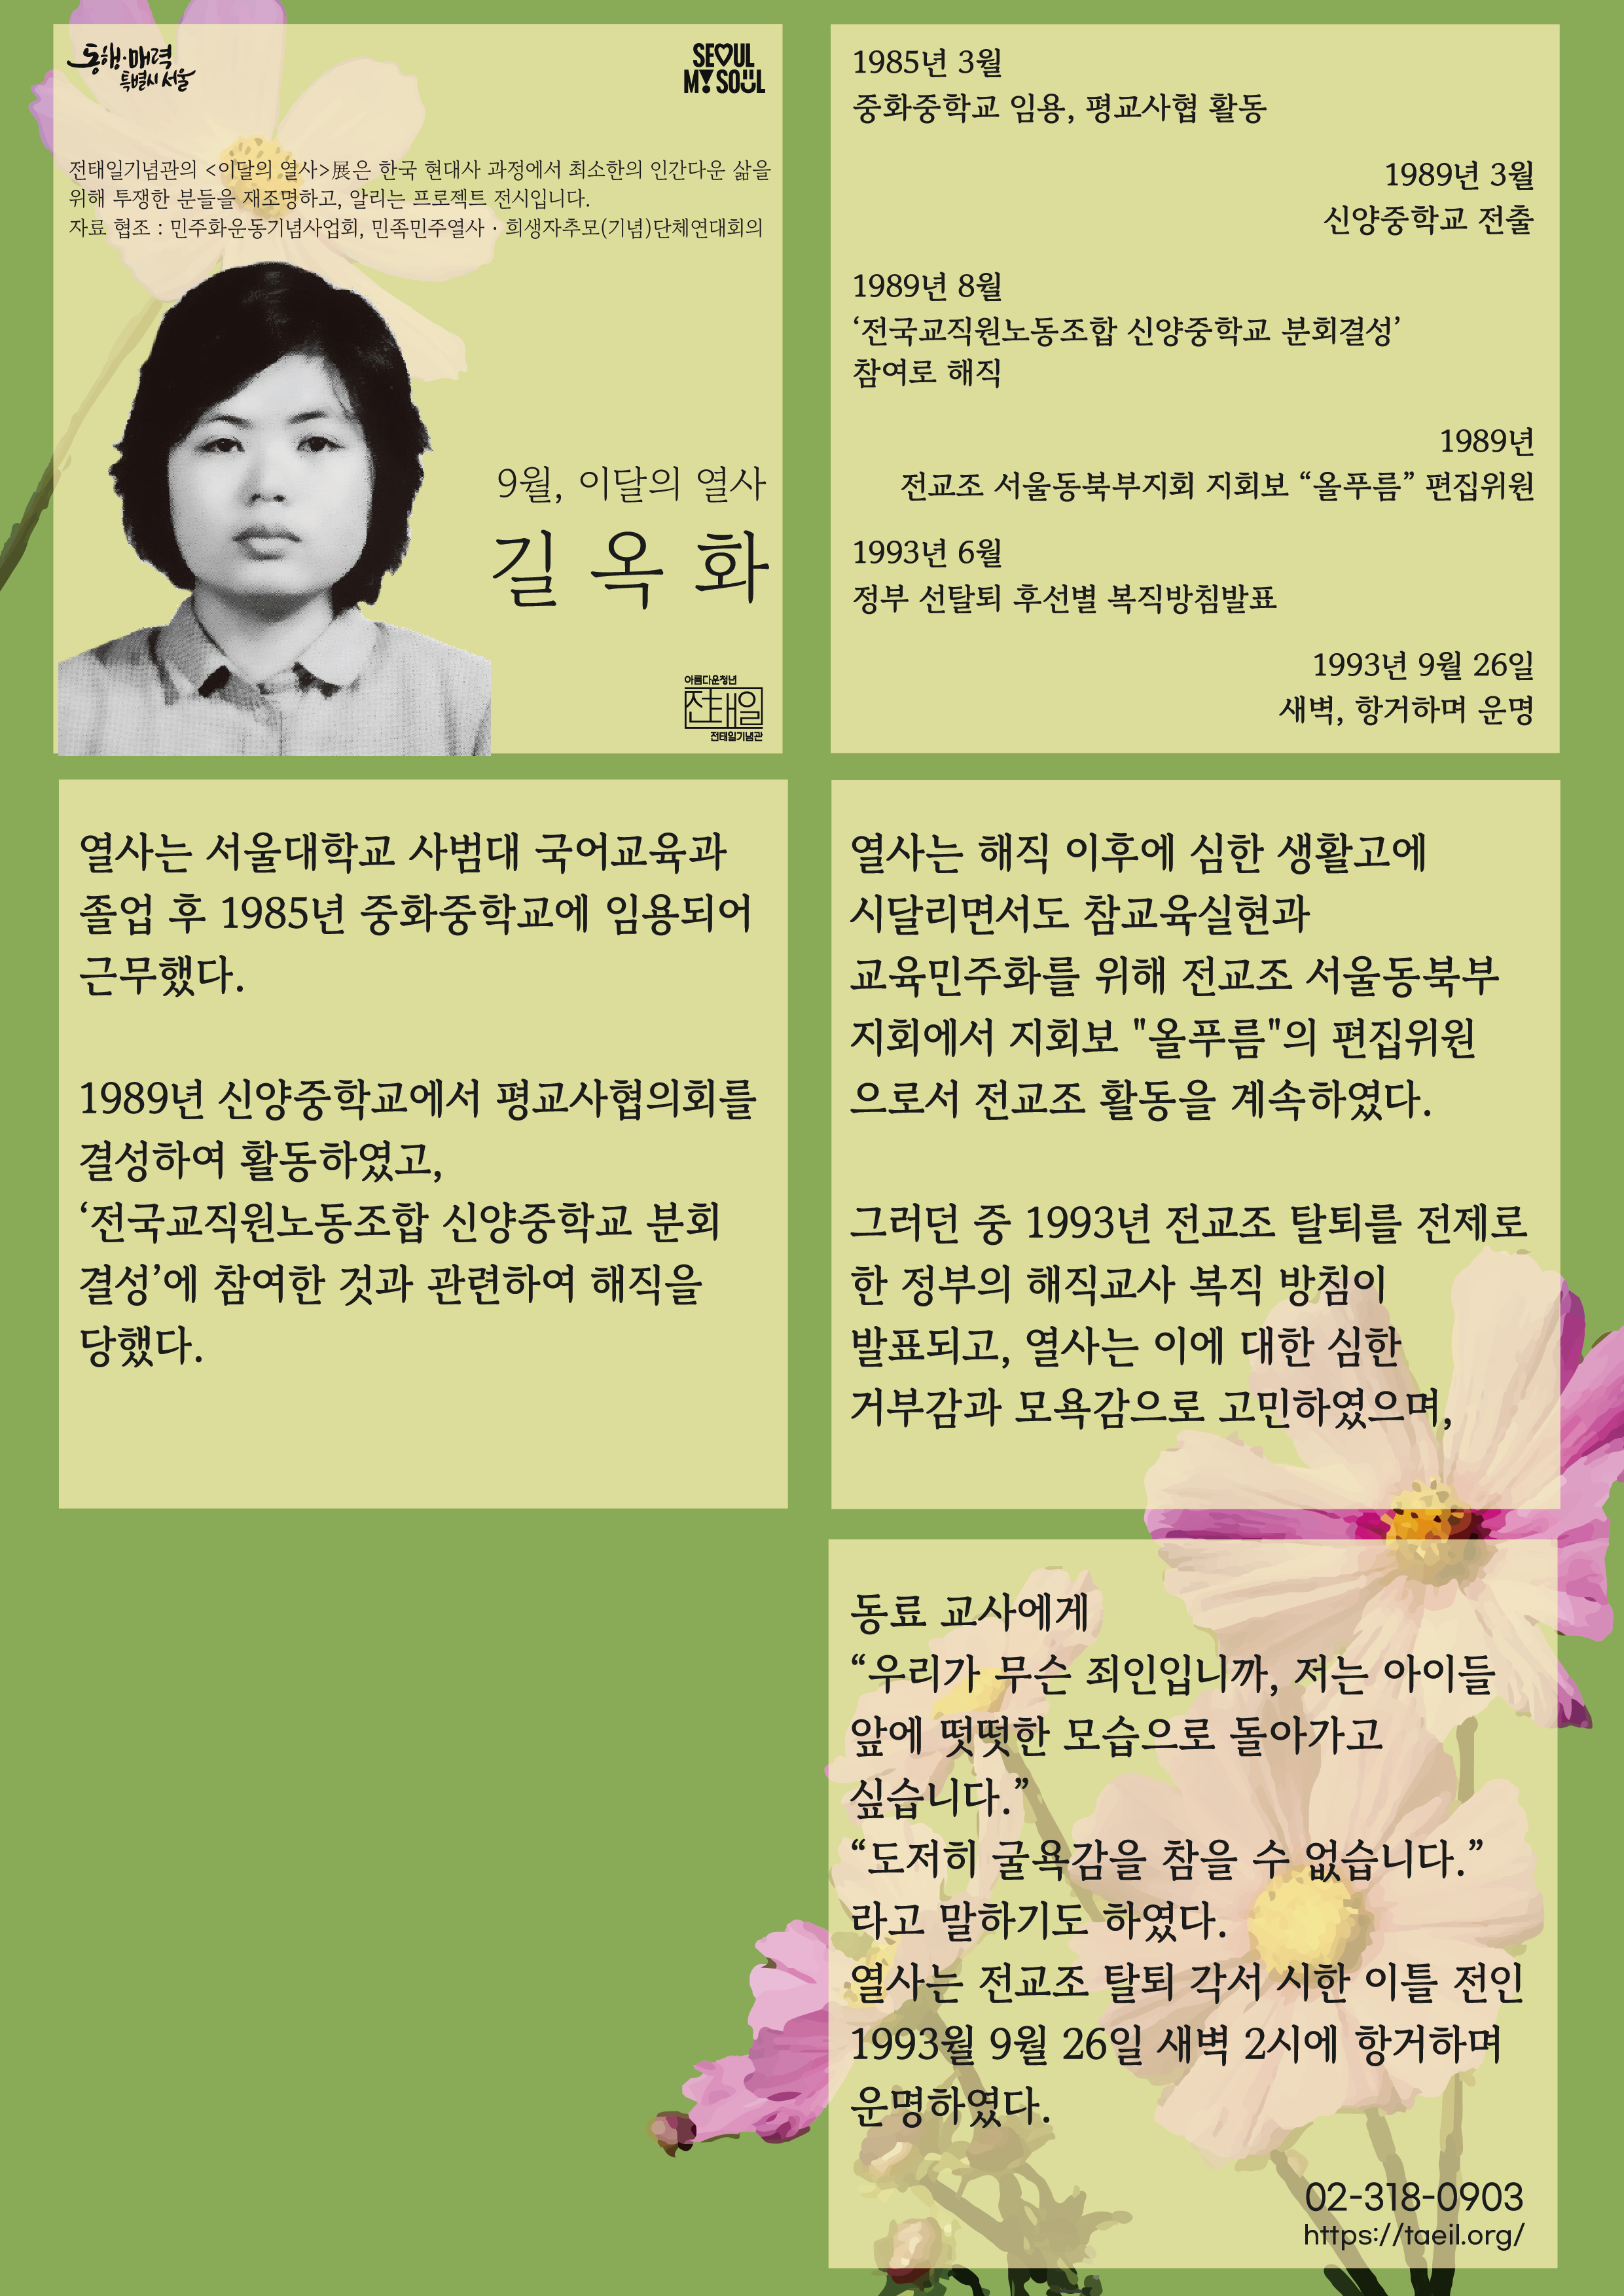 동행·매력
특별시 서울
SEOUL
MY SOUL
전태일기념관의 <이달의 열사>展은 한국 현대사 과정에서 최소한의 인간다운 삶을
위해 투쟁한 분들을 재조명하고, 알리는 프로젝트 전시입니다.
자료 협조 : 민주화운동기념사업회, 민족민주열사 · 희생자추모(기념)단체연대회의
9월, 이달의 열사
길옥화
아름다운청년
전태일
전태일기념관
1985년 3월
중화중학교 임용, 평교사협 활동
1989년 3월
신양중학교 전출
1989년 8월
‘전국교직원노동조합 신양중학교 분회결성’
참여로 해직
1989년
전교조 서울동북부지회 지회보 “올푸름” 편집위원
1993년 6월
정부 선탈퇴 후선별 복직방침발표
1993년 9월 26일
새벽, 항거하며 운명
열사는 서울대학교 사범대 국어교육과
졸업 후 1985년 중화중학교에 임용되어
근무했다.
1989년 신양중학교에서 평교사협의회를
결성하여 활동하였고,
‘전국교직원노동조합 신양중학교 분회
결성’에 참여한 것과 관련하여 해직을
당했다.
열사는 해직 이후에 심한 생활고에
시달리면서도 참교육실현과
교육민주화를 위해 전교조 서울동북부
지회에서 지회보 "올푸름"의 편집위원
으로서 전교조 활동을 계속하였다.
그러던 중 1993년 전교조 탈퇴를 전제로
한 정부의 해직교사 복직 방침이
발표되고, 열사는 이에 대한 심한
거부감과 모욕감으로 고민하였으며,
동료 교사에게
“우리가 무슨 죄인입니까, 저는 아이들
앞에 떳떳한 모습으로 돌아가고
싶습니다.”
“도저히 굴욕감을 참을 수 없습니다.”
라고 말하기도 하였다.
열사는 전교조 탈퇴 각서 시한 이틀 전인
1993월 9월 26일 새벽 2시에 항거하며
운명하였다.
02-318-0903
https://taeil.org/